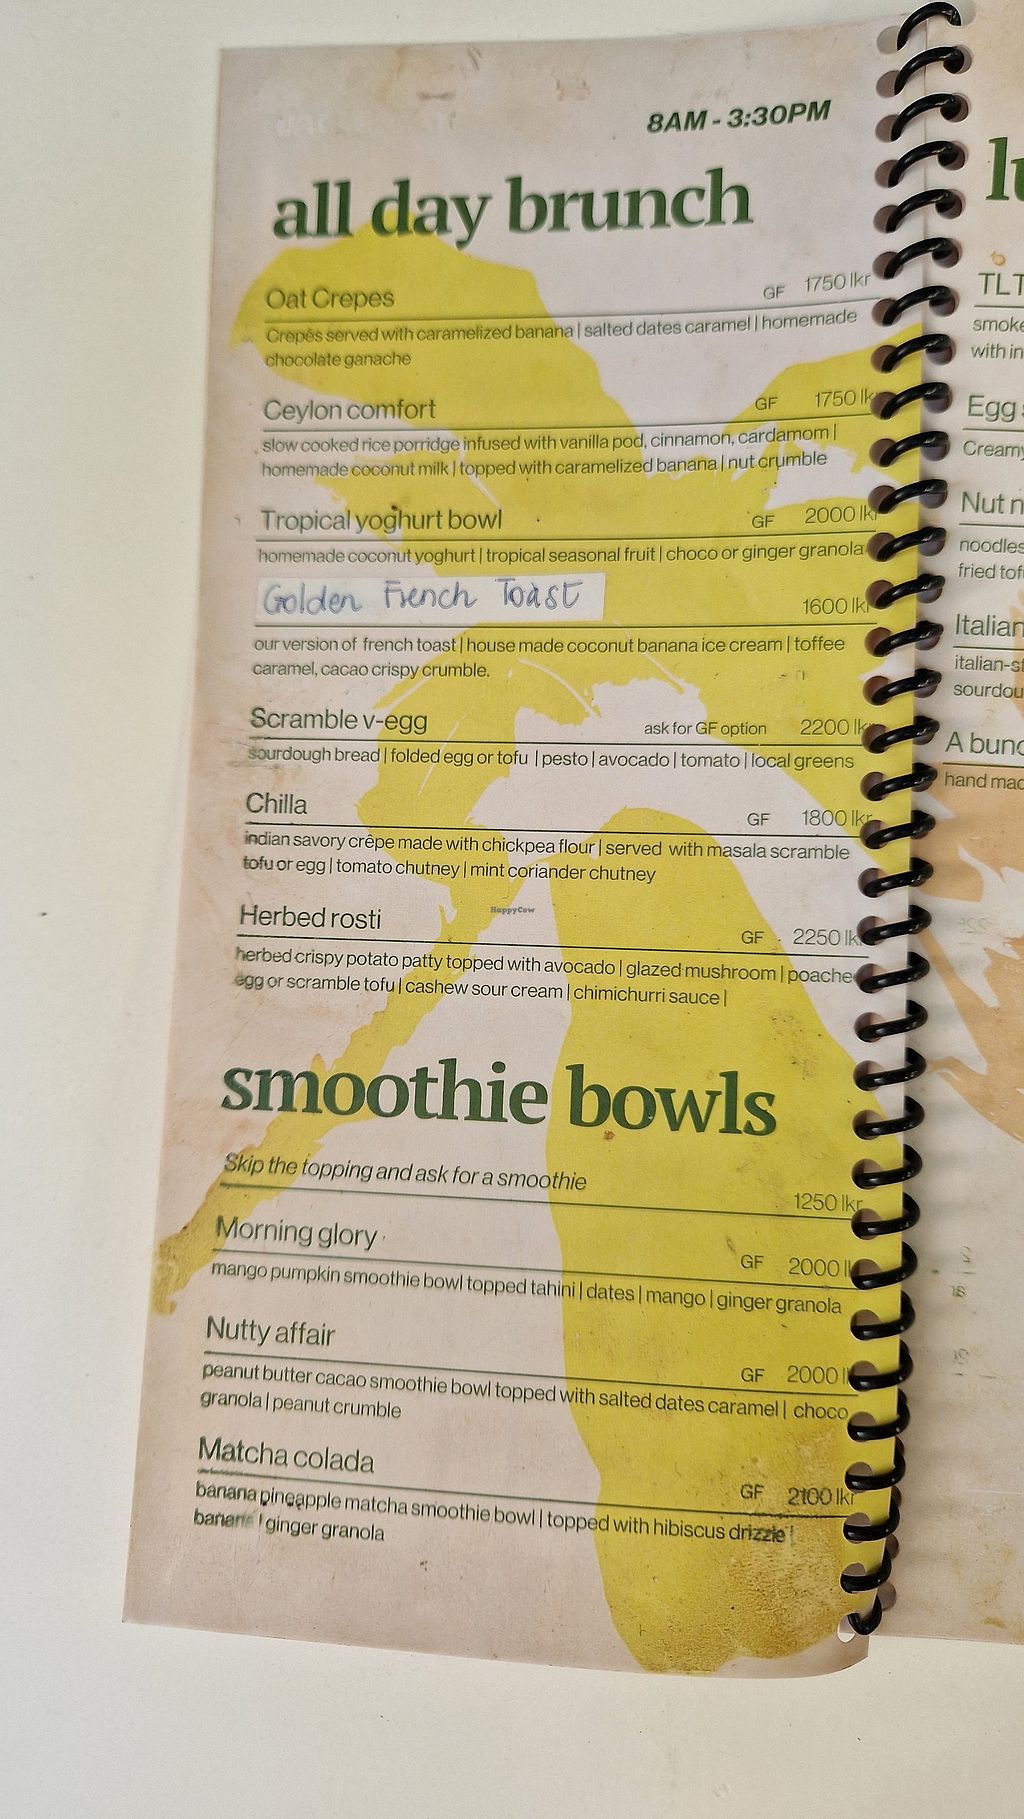 8AM - 3:30PM
all day brunch
Oat Crepes GF 1750 lkr
Crepés served with caramelized banana | salted dates caramel | homemade
chocolate ganache
Ceylon comfort GF 1750 lk
slow cooked rice porridge infused with vanilla pod, cinnamon, cardamom |
homemade coconut milk | topped with caramelized banana | nut crumble
Tropical yoghurt bowl GF 2000 lkr
homemade coconut yoghurt | tropical seasonal fruit | choco or ginger granola
Golden French Toast 1600 lkr
our version of french toast | house made coconut banana ice cream | toffee
caramel, cacao crispy crumble.
Scramble v-egg ask for GF option 2200 lkr
sourdough bread | folded egg or tofu | pesto | avocado | tomato | local greens
Chilla GF 1800 lkr
indian savory crêpe made with chickpea flour | served with masala scramble
tofu or egg | tomato chutney | mint coriander chutney
Herbed rosti GF 2250 lk
herbed crispy potato patty topped with avocado | glazed mushroom | poache
egg or scramble tofu | cashew sour cream | chimichurri sauce |
smoothie bowls
Skip the topping and ask for a smoothie
1250 lkr
Morning glory GF 2000 l
mango pumpkin smoothie bowl topped tahini | dates | mango | ginger granola
Nutty affair GF 2000 l
peanut butter cacao smoothie bowl topped with salted dates caramel | choco
granola | peanut crumble
Matcha colada GF 2100 lkr
banana pineapple matcha smoothie bowl | topped with hibiscus drizzle |
banana | ginger granola
HappyCow
TLT
smoke
with in
Egg
Creamy
Nut n
noodles
fried tof
Italian
italian-st
sourdou
A bunc
hand mad